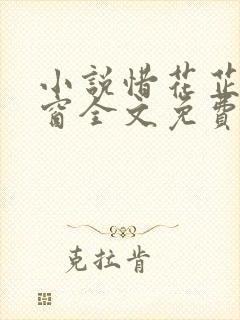 小說惜花芷
窗全文免費
克拉肯